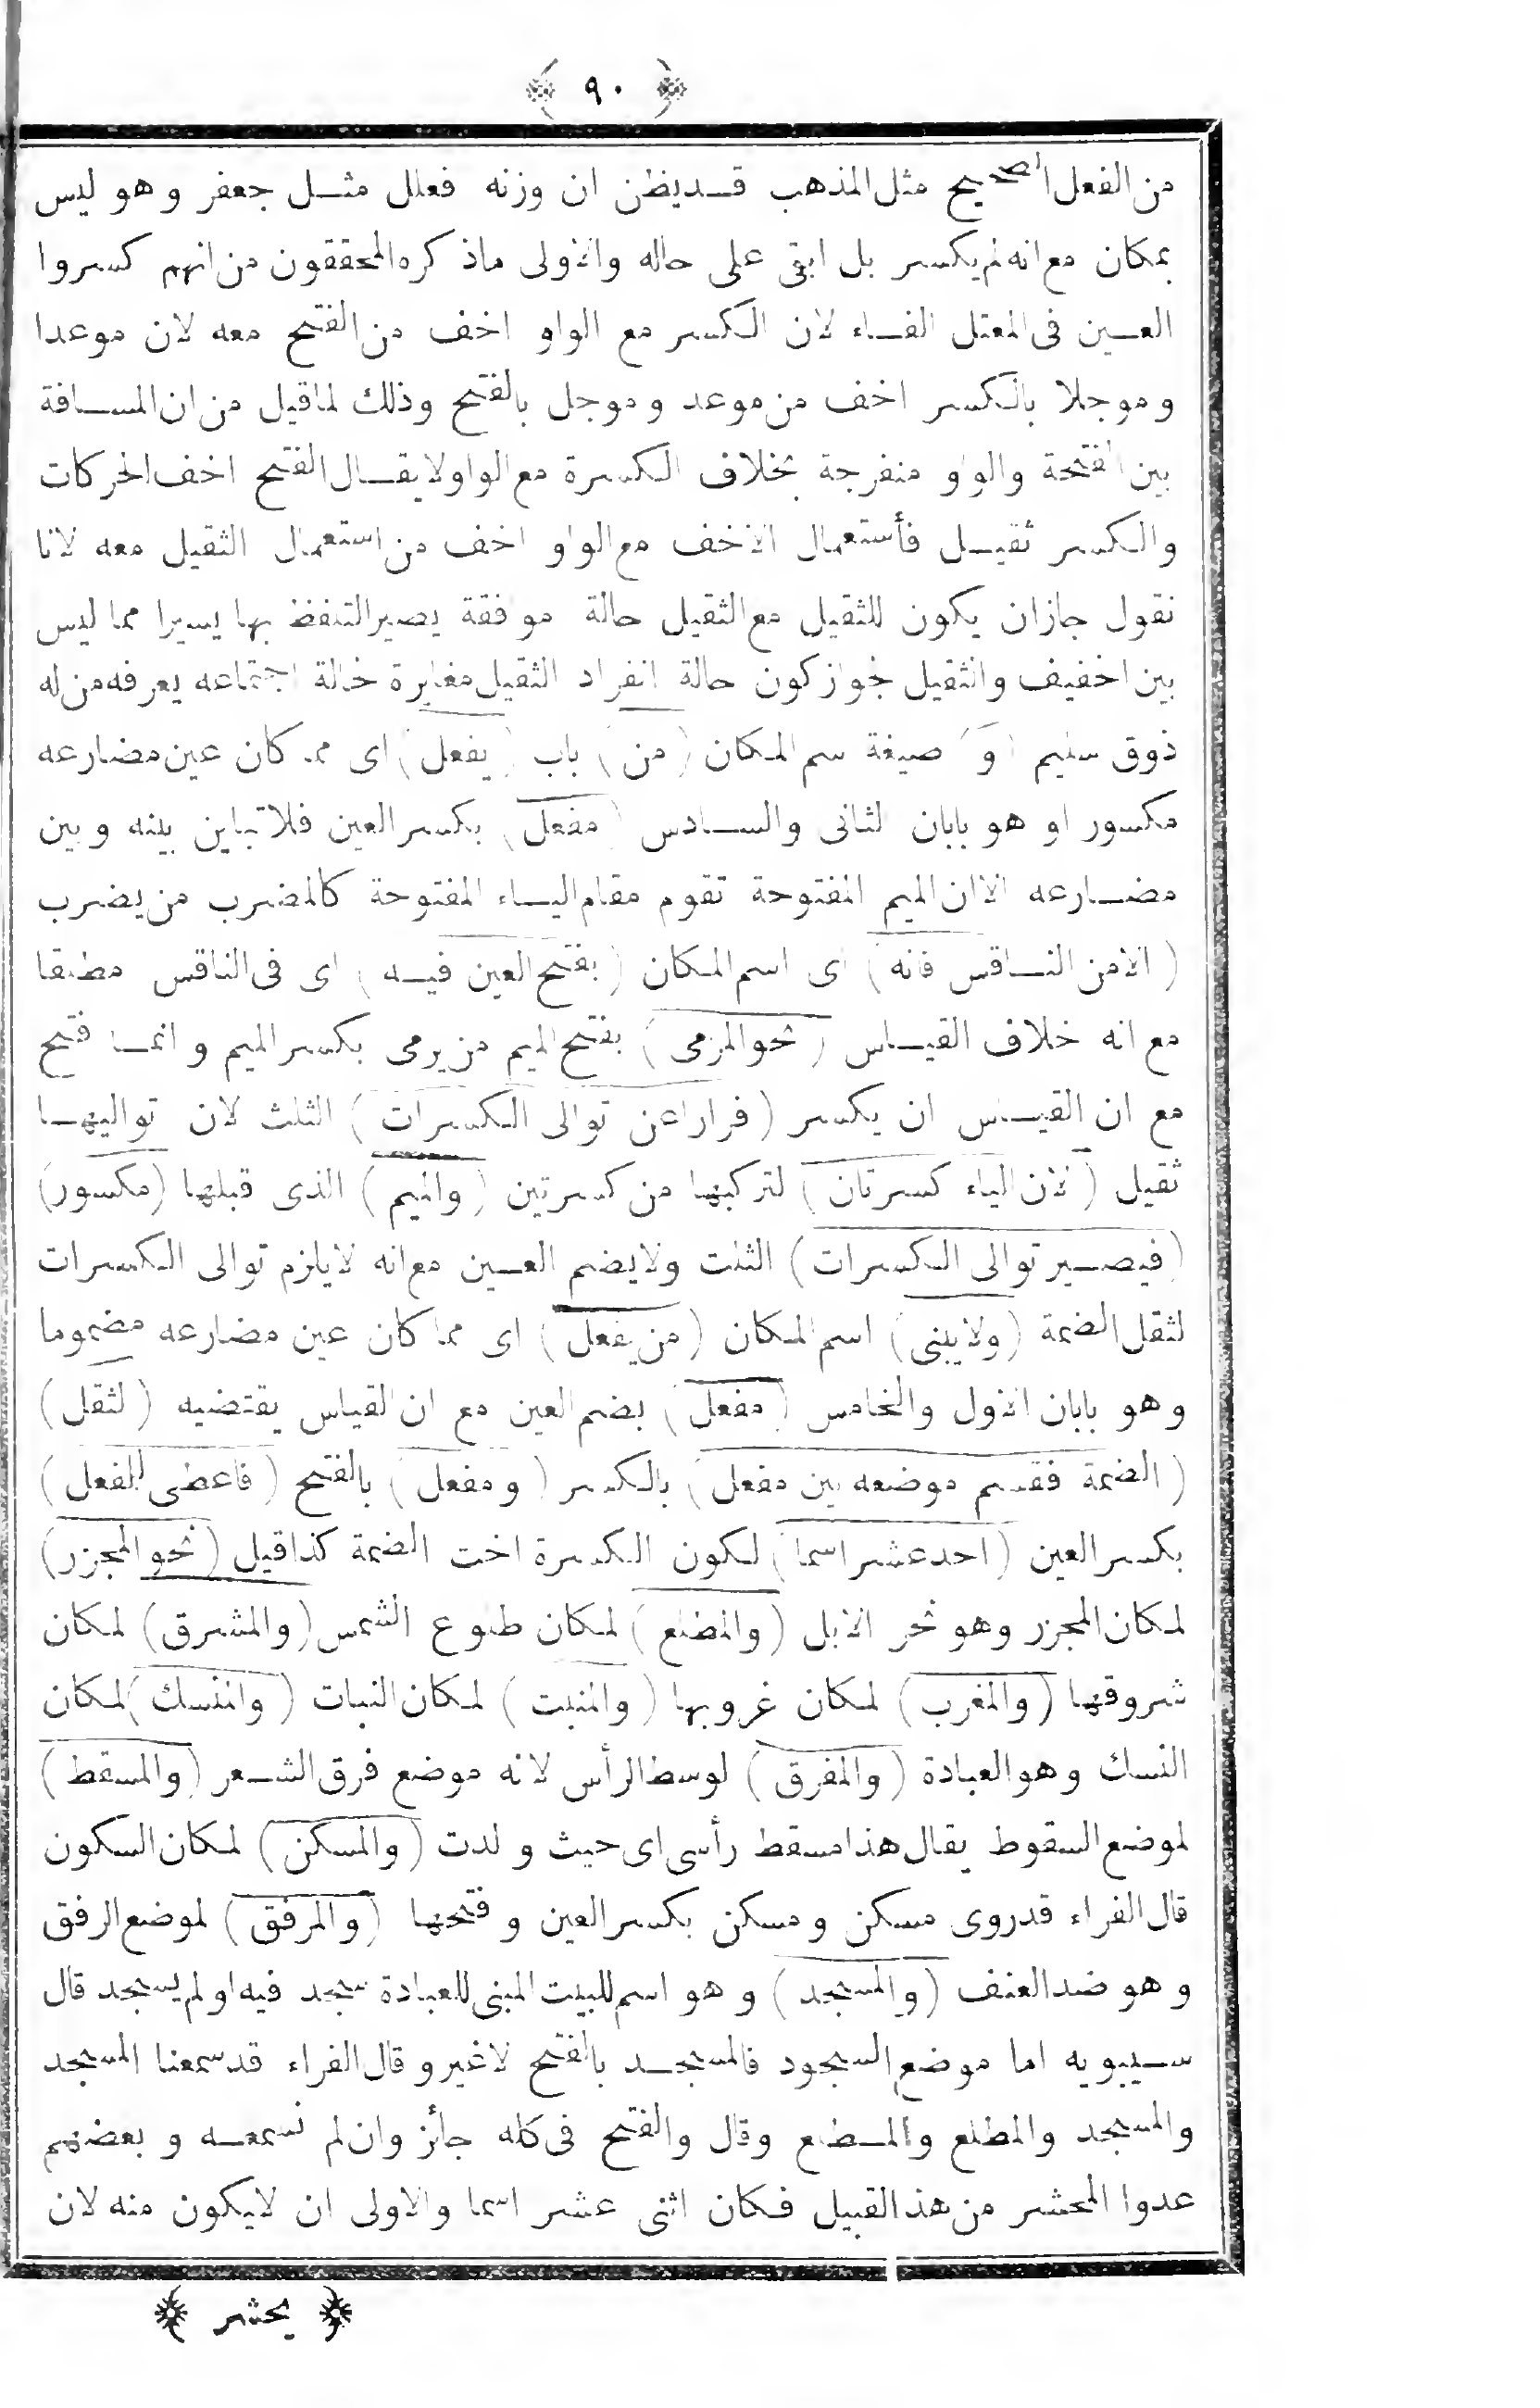 ﴿ ٩٠ ﴾
من الفعل الصحيح مثل المذهب قد يظن ان وزنه فعلل مثل جعفر وهو ليس
بمكان مع انه لم يكسر بل ابقى على حاله والاولى ماذكره المحققون من انهم كسروا
العين فى المعتل الفاء لان الكسر مع الواو اخف من الفتح معه لان موعدا
وموجلا بالكسر اخف من موعد وموجل بالفتح وذلك لماقيل من ان المسافة
بين الفتحة والواو منفرجة بخلاف الكسرة مع الواو لايقال الفتح اخف الحركات
والكسر ثقيل فأستعمال الاخف مع الواو اخف من استعمال الثقيل معه لانا
نقول جازان يكون للثقيل مع الثقيل حالة موافقة يصير التلفظ بها يسيرا مما ليس
بين الخفيف والثقيل لجواز كون حالة انفراد الثقيل مغايرة لحالة اجتماعه يعرفه من له
ذوق سليم (و) صيغة اسم المكان (من) باب (يفعل) اى مما كان عين مضارعه
مكسورا وهو بابان الثانى والسادس (مفعل) بكسر العين فلاتباين بينه وبين
مضارعه الاان الميم المفتوحة تقوم مقام الياء المفتوحة كالمضرب من يضرب
(الامن الناقص فانه) اى اسم المكان (بفتح العين فيه) اى فى الناقص مطلقا
مع انه خلاف القياس (نحو المرمى) بفتح الميم من يرمى بكسر الميم وانما فتح
مع ان القياس ان يكسر (فرارا عن توالى الكسرات) الثلث لان تواليها
ثقيل (لان الياء كسرتان) لتركبها من كسرتين (والميم) الذى قبلها (مكسور)
(فيصير توالى الكسرات) الثلث ولايضم العين مع انه لايلزم توالى الكسرات
لثقل الضمة (ولايبنى) اسم المكان (من يفعل) اى مما كان عين مضارعه مضموما
وهو بابان الاول والخامس (مفعل) بضم العين مع ان القياس يقتضيه (لثقل)
(الضمة فقسم موضعه بين مفعل) بالكسر (ومفعل) بالفتح (فاعطى للمفعل)
بكسر العين (احدعشر اسما) لكون الكسرة اخت الضمة كذاقيل (نحو المجزر)
لمكان المجزر وهو نحر الابل (والمطلع) لمكان طلوع الشمس (والمشرق) لمكان
شروقها (والمغرب) لمكان غروبها (والمنبت) لمكان النبات (والمنسك) لمكان
النسك وهو العبادة (والمفرق) لوسط الرأس لانه موضع فرق الشعر (والمسقط)
لموضع السقوط يقال هذا مسقط رأسى اى حيث ولدت (والمسكن) لمكان السكون
قال الفراء قدروى مسكن ومسكن بكسر العين وفتحها (والمرفق) لموضع الرفق
وهو ضد العنف (والمسجد) وهو اسم للبيت المبنى للعبادة سجد فيه اولم يسجد قال
سيبويه اما موضع السجود فالمسجد بالفتح لاغير وقال الفراء قدسمعنا المسجد
والمسجد والمطلع والمطلع وقال والفتح فى كله جائز وان لم نسمعه وبعضهم
عدوا المحشر من هذا القبيل فكان اثنى عشر اسما والاولى ان لايكون منه لان
﴿ يحشر ﴾